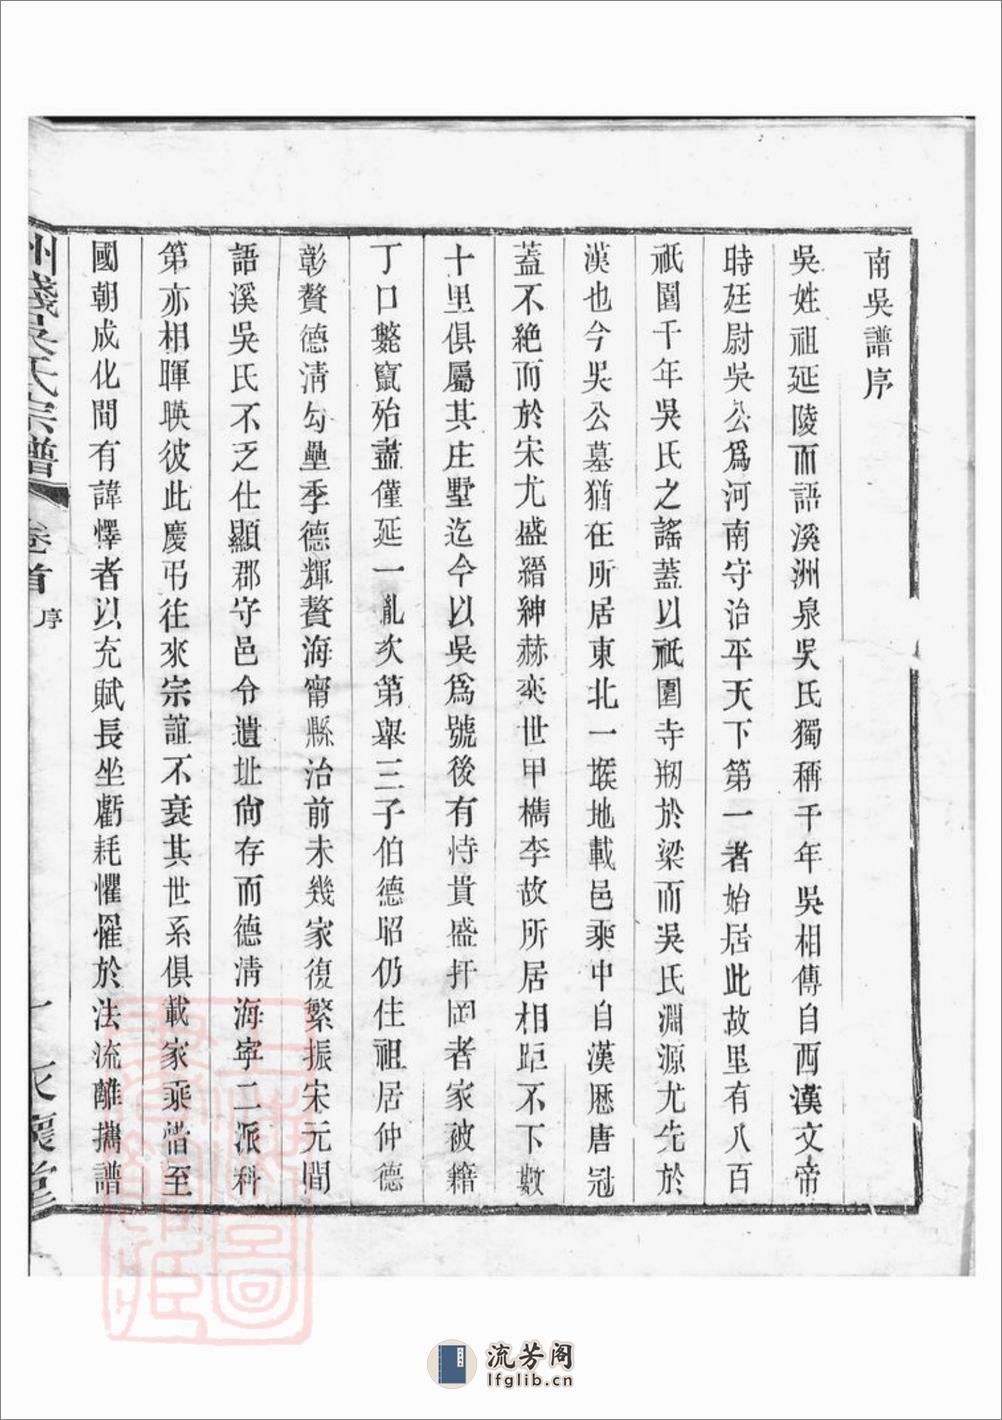 南吳譜序
吳姓祖延陵而語溪洲泉吳氏獨稱千年吳相傳自西漢文帝
時廷尉吳公爲河南守治平天下第一者始居此故里有八百
祇園千年吳氏之謠蓋以祇園寺剏於梁而吳氏淵源尤先於
漢也今吳公墓猶在所居東北一堠地載邑乘中自漢歷唐冠
蓋不絕而於宋尤盛縉紳赫奕世甲檇李故所居相距不下數
十里俱屬其庄墅迄今以吳爲號後有恃貴盛扞罔者家被籍
丁口斃竄殆盡僅延一胤次第舉三子伯德昭仍住祖居仲德
彰贅德清勾壘季德輝贅海甯縣治前未幾家復繁振宋元間
語溪吳氏不乏仕顯郡守邑令遺址尙存而德清海寧二派科
第亦相暉暎彼此慶弔往來宗誼不衰其世系俱載家乘惜至
國朝成化間有諱懌者以充賦長坐虧耗懼罹於法流離攜譜
洲錢吳氏宗譜 卷首 序 一
流芳阁
lfglib.cn